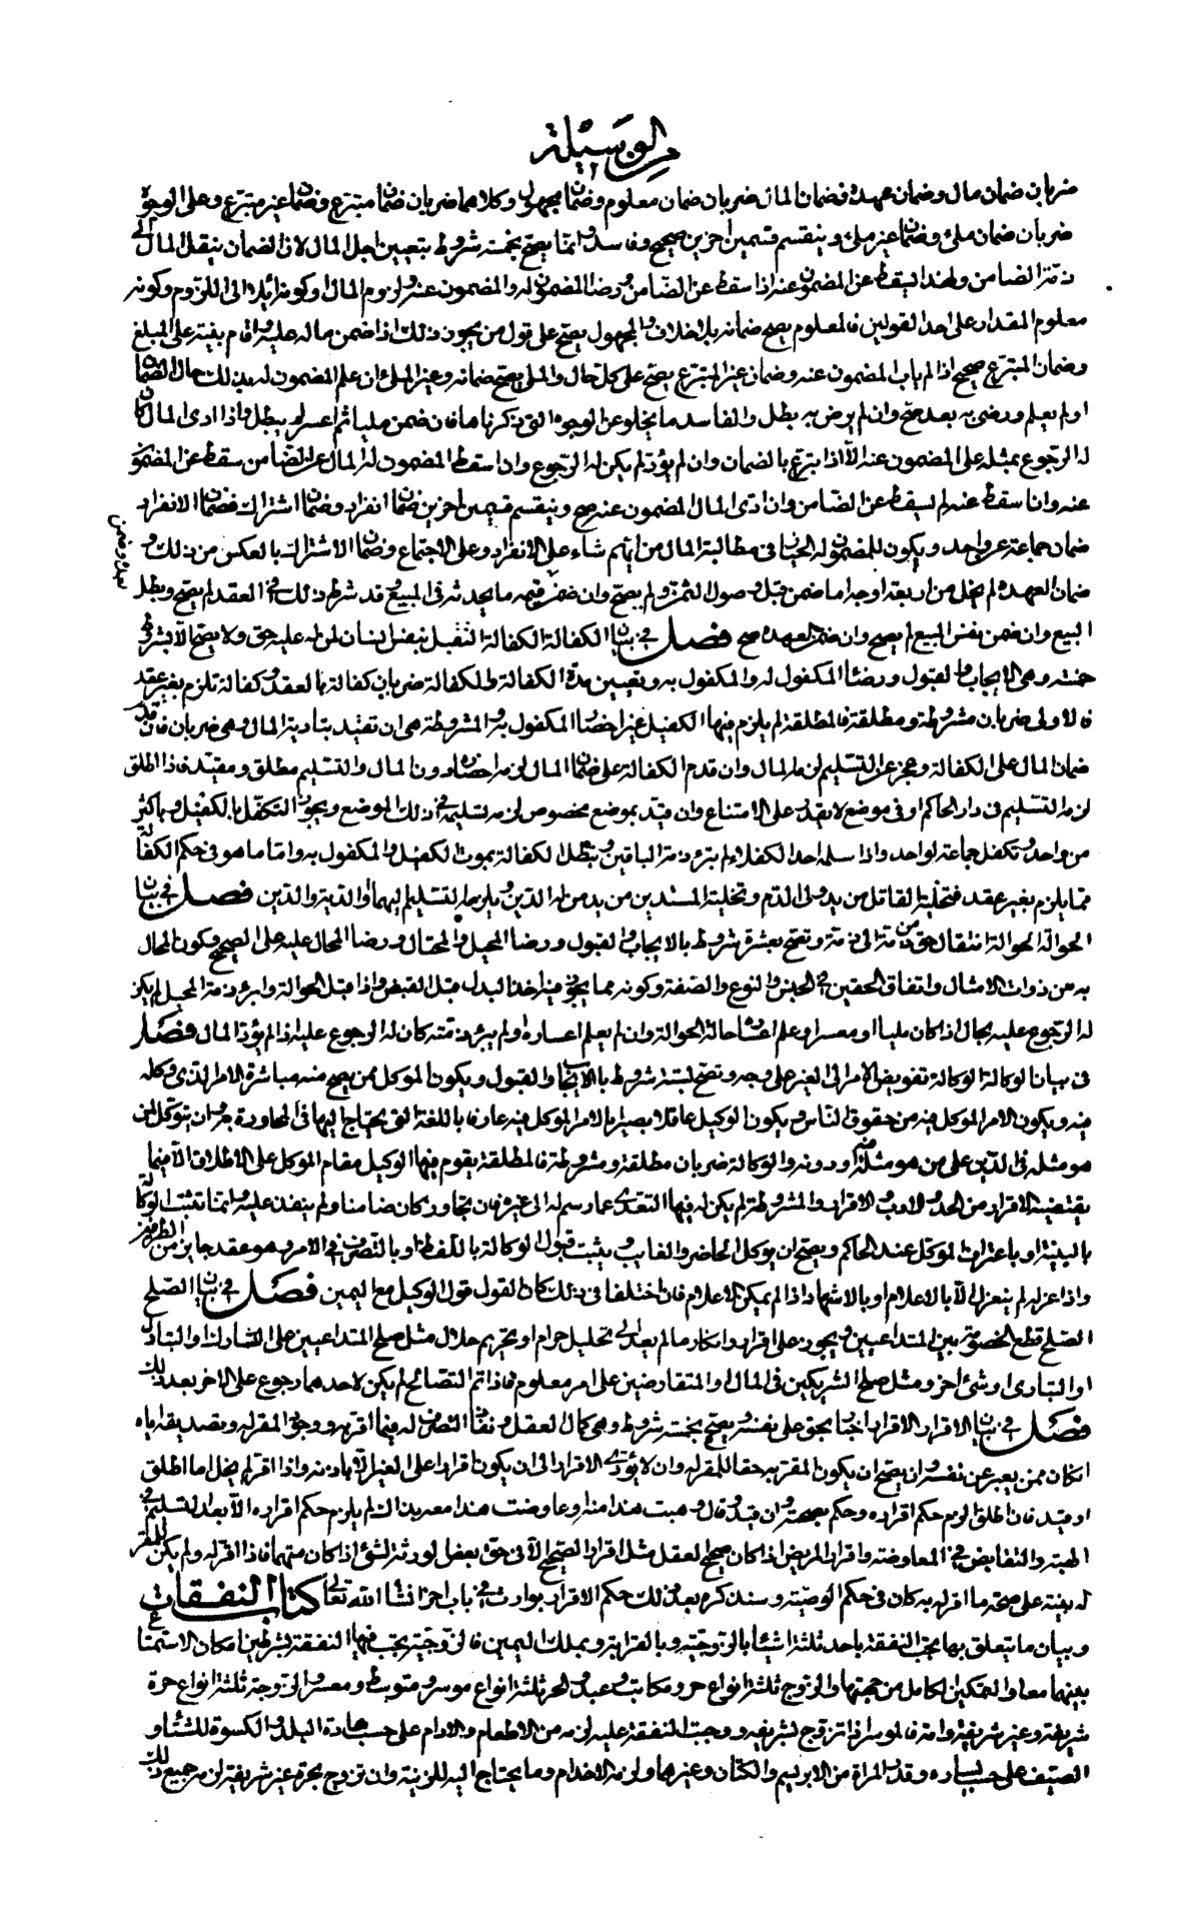 من الوسيلة
ضربان ضمان مال وضمان عهدة فضمان المال ضربان ضمان معلوم وضمان مجهول وكلاهما ضربان ضمان متبرع وضمان غير متبرع وعلى الوجوه
ضربان ضمان ملئ وضمان غير ملئ وينقسم قسمين اخرين صحيح وفاسد وانما يصح بخمسة شروط بتعيين اجل المال لان الضمان ينقل المال الى
ذمة الضامن ولهذا لا يسقط عن المضمون عنه اذا سقط عن الضامن ورضا المضمون له والمضمون عنه ولزوم المال او كونه آئلا الى اللزوم وكونه
معلوم المقدار على احد القولين فالمعلوم يصح ضمانه بلا خلاف والمجهول يصح على قول من يجوز ذلك اذا ضمن ماله عليه واقام بينة على المبلغ
وضمان المتبرع صحيح اذا لم ياب المضمون عنه وضمان غير المتبرع يصح على كل حال والملي يصح ضمانه وغير الملئ ان علم المضمون له بذلك حال الضمان
او لم يعلم ورضي به بعد صح وان لم يرض به بطل والفاسد ما يخلو عن الوجوه التي ذكرناها فان ضمن مليا ثم اعسر لم يبطل واذا ادى المال كان
له الرجوع بمثله على المضمون عنه الا اذا تبرع بالضمان وان لم يؤد لم يكن له الرجوع واذا سقط المضمون له المال عن الضامن سقط عن المضمون
عنه وان اسقط عنه لم يسقط عن الضامن وان ادى المال المضمون عنه صح وينقسم قسمين اخرين ضمان انفراد وضمان اشتراك فضمان الانفراد
ضمان جماعة عن واحد ويكون للمضمون له الخيار في مطالبة المال من ايهم شاء على الانفراد وعلى الاجتماع وضمان الاشتراك بالعكس من ذلك و
ضمان العهدة لم يخل من اربعة اوجه اما ضمن قبل وصول الثمن ولم يصح وان ضمن قيمة ما يحدثه في المبيع وقد شرط ذلك في العقد لم يصح وبطل
البيع وان ضمن نفس المبيع لم يصح وان ضمن العهدة صح فصل في بيان الكفالة الكفالة التقبل بنفس انسان لمن له عليه حق ولا يصح الا بشروط
خمسة وهي الايجاب والقبول ورضا المكفول له والمكفول به وتعيين مدة الكفالة والكفالة ضربان كفالة بالعقد وكفالة تلزم بغير عقد
فالاولى ضربان مشروطة ومطلقة فالمطلقة لم يلزم فيها الكفيل غير احضار المكفول به والمشروطة هي ان تقيد بتادية المال وهي ضربان فان قدم
ضمان المال على الكفالة وعجز عن التسليم لزمه المال وان قدم الكفالة على ضمان المال لزمه احضاره دون المال والتسليم مطلق ومقيد فاذا اطلق
لزمه التسليم في دار الحاكم او في موضع لا يقدر على الامتناع وان قيد بموضع مخصوص لزمه تسليمه في ذلك الموضع ويجوز التكفل بالكفيل وباكثر
من واحد وتكفل جماعة لواحد واذا سلمه احد الكفلاء لم تبرء ذمة الباقين وتبطل الكفالة بموت الكفيل والمكفول به واما ما هو في حكم الكفالة
مما يلزم بغير عقد فتخلية القاتل من يد ولي الدم وتخلية المستدين من يد من له الدين ويلزمه التسليم اليهما او الدية والدين فصل في بيان
الحوالة الحوالة انتقال حق من ذمة الى ذمة وتصح بعشرة شروط بالايجاب والقبول ورضا المحيل والمحتال ورضا المحال عليه على الصحيح وكون المحال
به من ذوات الامثال واتفاق الحقين في الجنس والنوع والصفة وكونه مما يجوز فيه اخذ البدل قبل القبض واذا قبل الحوالة وابرء ذمة المحيل لم يكن
له الرجوع عليه بحال اذا كان مليا او معسرا وعلم اعساره حالة الحوالة وان لم يعلم اعساره ولم يبرء ذمته كان له الرجوع عليه اذا لم يؤد المال فصل
في بيان الوكالة الوكالة تفويض الامر الى الغير على وجه وتصح بستة شروط بالايجاب والقبول ويكون الموكل ممن يصح منه مباشرة الامر الذي وكله
فيه ويكون الامر الموكل فيه من حقوق الناس ويكون الوكيل عاقلا بصيرا بالامر الموكل فيه عارفا باللغة التي يحتاج اليها في المحاورة وان يتوكل لمن
هو مثله في الدين على من هو مثله ودونه والوكالة ضربان مطلقة ومشروطة فالمطلقة يقوم فيها الوكيل مقام الموكل على الاطلاق الا فيما
يقتضيه الاقرار من الحدود والادب والاقرار والمشروطة لم يكن له فيها التعدي عما رسم له الى غيره فان تجاوز كان ضامنا ولم ينفذ عليه وانما تثبت الوكالة
بالبينة او باعتراف الموكل عند الحاكم ويصح ان يوكل الحاضر والغائب ويثبت قبول الوكالة باللفظ او بالتصرف في الامر وهو عقد جايز من الطرفين
واذا عزله لم ينعزل الا بالاعلام او بالاشهاد اذا لم يمكن الاعلام فان اختلفا في ذلك كان القول قول الوكيل مع اليمين فصل في بيان الصلح
الصلح قطع الخصومة بين المتداعيين ويجوز على اقرار وانكار ما لم يعد الى تحليل حرام او تحريم حلال مثل صلح المتداعيين على التشارك والتبادل
او التباري او شئ اخر ومثل صلح الشريكين في المال او المتقارضين على امر معلوم فاذا تم التصالح لم يكن لاحدهما رجوع على الاخر بعد ذلك
فصل في بيان الاقرار الاقرار اخبار بحق على نفسه ويصح بخمسة شروط وهي كمال العقل ونفاذ التصرف له فيما اقر به ووجود المقر له وتصديقه اياه
ان كان ممن يعبر عن نفسه وان يصح ان يكون المقر به حقا للمقر له وان لا يؤدي الاقرار الى ان يكون اقرارا على الغير الا باذنه واذا اقر لم يخل اما اطلق
او قيد فان اطلق لزم حكم اقراره وحكم بصحته وان قيد وقال وهبت هذا منه او عاوضت هذا معه بذلك لم يلزم حكم اقراره الا بعد التسليم في
الهبة والتقابض في المعاوضة واقرار المريض اذا كان صحيح العقل مثل اقرار الصحيح الا في حق بعض الورثة لشئ اذا كان متهما فاذا اقر له ولم يكن للمقر
له بينة على صحة ما اقر له به كان في حكم الوصية وسنذكر بعد ذلك حكم الاقرار بوارث في باب اخر انشا الله تعالى كتاب النفقات
وبيان ما يتعلق بها يجب النفقة باحد ثلثة اشيا بالزوجية وبالقرابة وبملك اليمين فالزوجية يجب فيها النفقة بشرطين امكان الاستمتاع
بينهما معا والتمكين الكامل من جهتها والزوج ثلثة انواع حر ومكاتب وعبد والحر ثلثة انواع موسر ومتوسط ومعسر والزوجة ثلثة انواع حرة
شريفة وغير شريفة وامة فالموسر اذا تزوج لشريفة ووجبت النفقة عليه لزمه من الاطعام والادام على حسب عادة البلد والكسوة للشتاء و
الصيف على حسب يساره وقدر المراة من الابريسم والكتان وغيرهما ولزمه الاخدام وما يحتاج اليه للزينة وان تزوج بحرة غير شريفة لزمه جميع ذلك